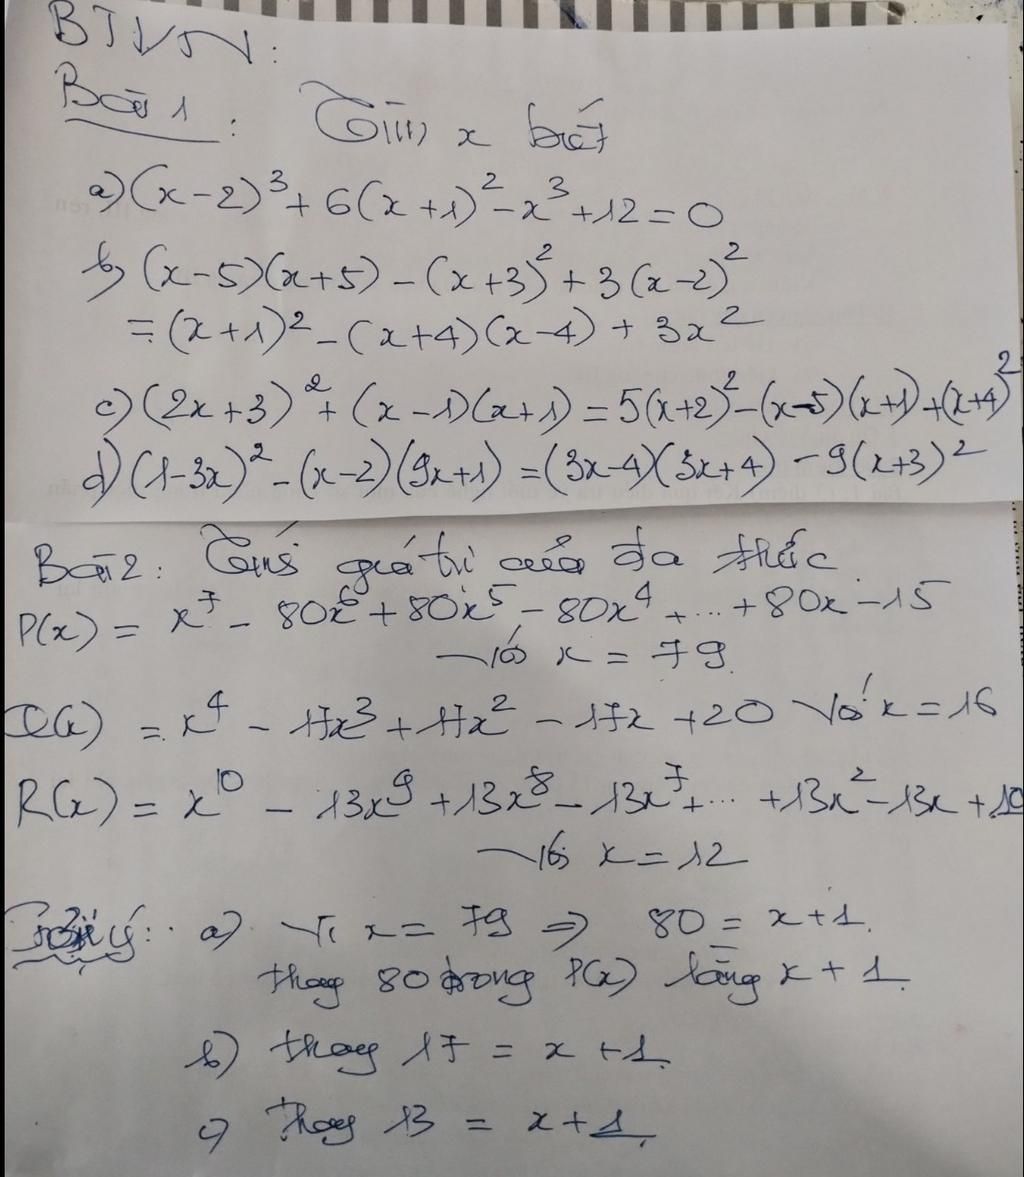 BTVN:
Bài 1: Tìm x biết
a) (x-2)³ + 6(x+1)² - x³ + 12 = 0
b) (x-5)(x+5) - (x+3)² + 3(x-2)²
= (x+1)² - (x+4)(x-4) + 3x²
c) (2x+3)² + (x-1)(x+1) = 5(x+2)² - (x-5)(x+1) + (x+4)²
d) (1-3x)² - (x-2)(9x+1) = (3x-4)(3x+4) - 9(x+3)²
Bài 2: Tính giá trị của đa thức
P(x) = x⁷ - 80x⁶ + 80x⁵ - 80x⁴ + ... + 80x - 15
với x = 79
Q(x) = x⁴ - 17x³ + 17x² - 17x + 20 với x = 16
R(x) = x¹⁰ - 13x⁹ + 13x⁸ - 13x⁷ + ... + 13x² - 13x + 10
với x = 12
Gợi ý: a) Vì x = 79 ⇒ 80 = x + 1.
thay 80 trong P(x) bằng x + 1.
b) thay 17 = x + 1.
c) Thay 13 = x + 1.